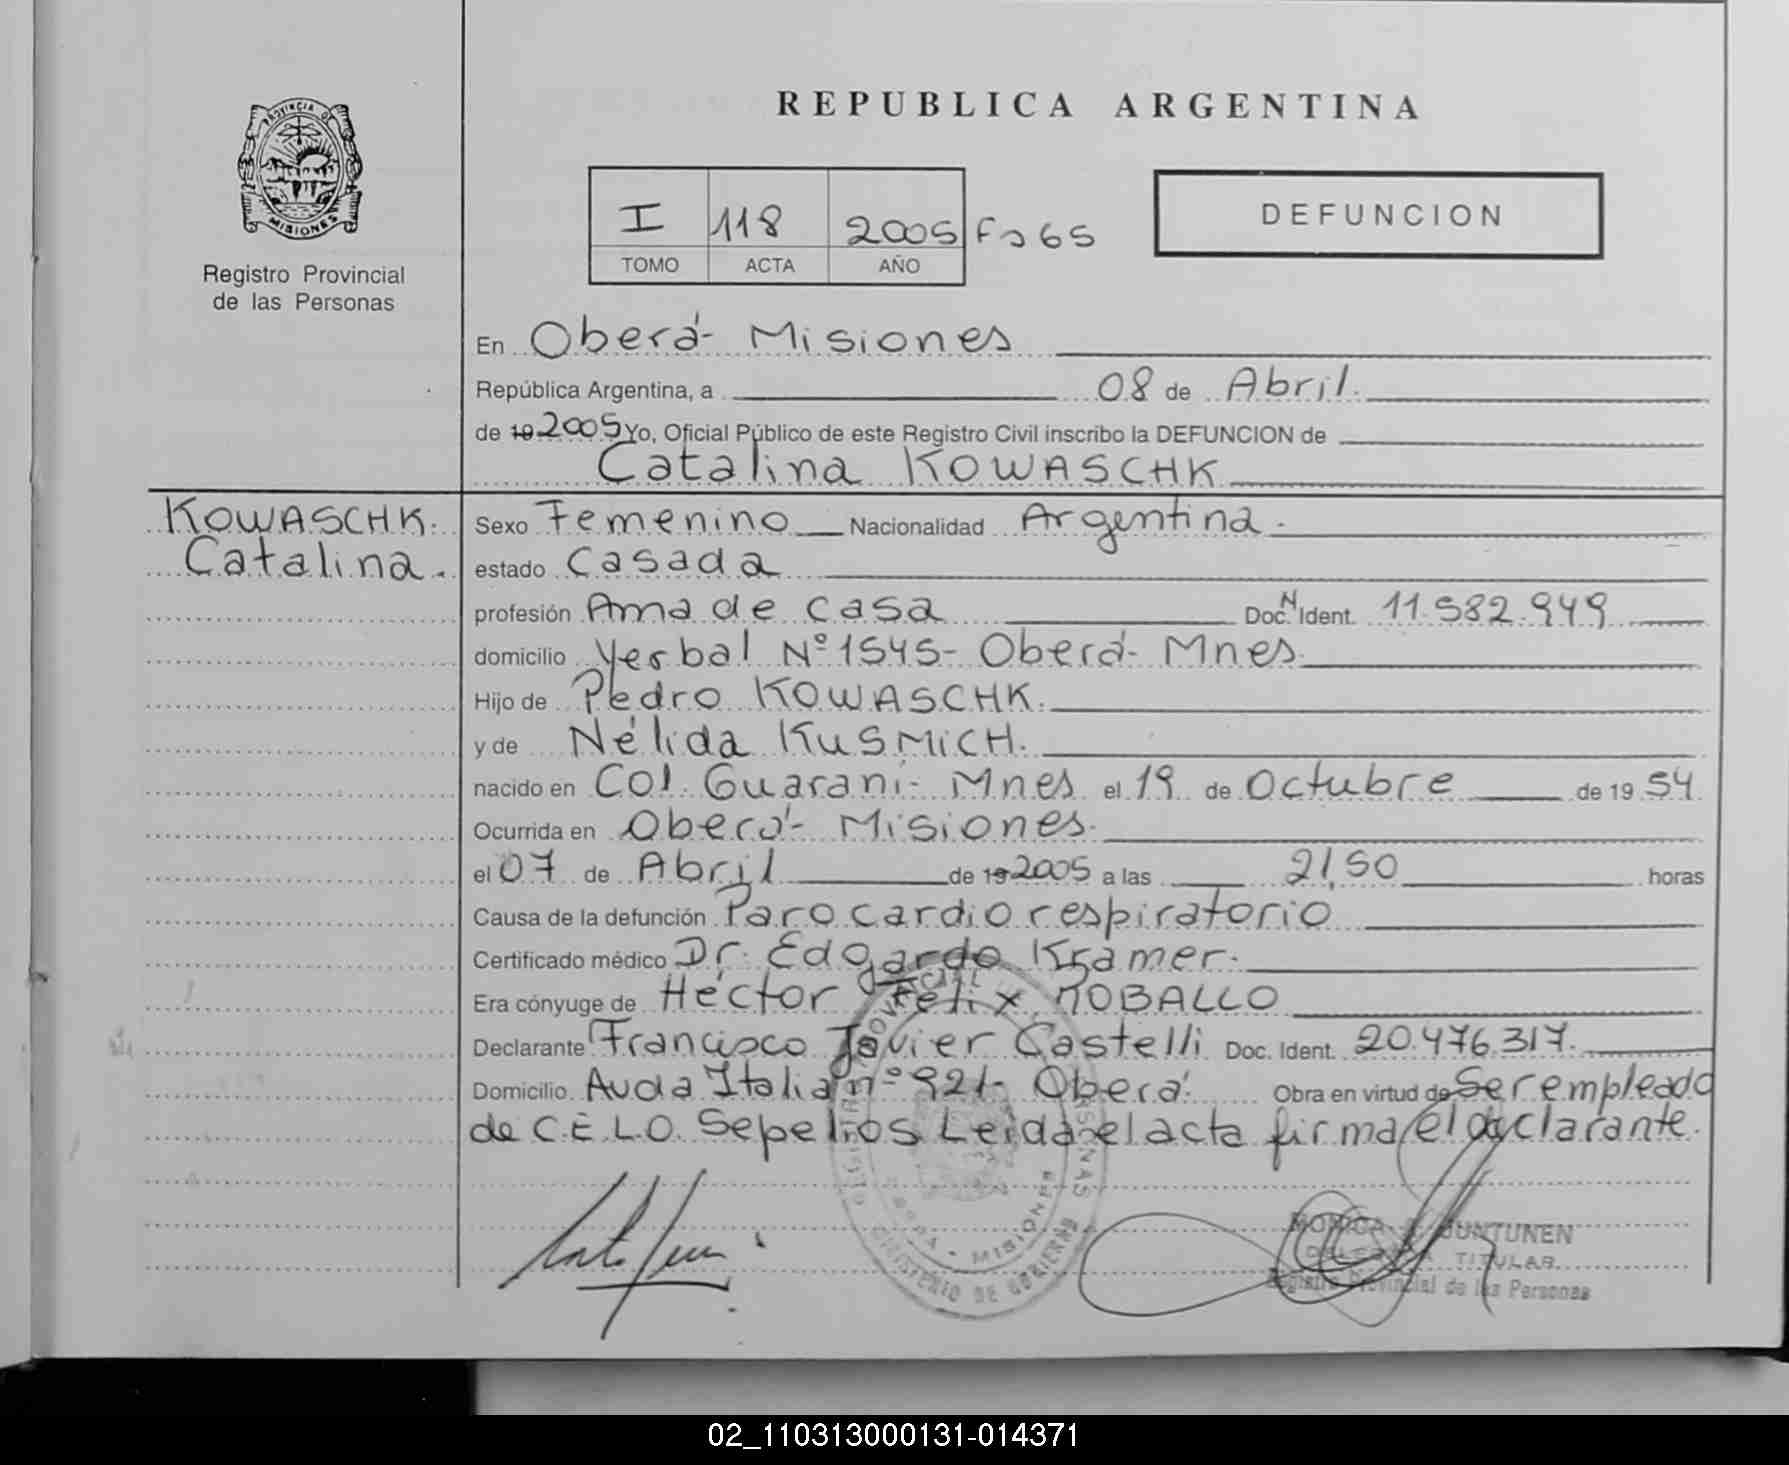 PROVINCIA DE
MISIONES
Registro Provincial
de las Personas
REPUBLICA ARGENTINA
I 118 2005 Fº 65
TOMO ACTA AÑO
DEFUNCION
En Oberá- Misiones
República Argentina, a 08 de Abril.
de 19 2005 Yo, Oficial Público de este Registro Civil inscribo la DEFUNCION de
Catalina KOWASCHK
KOWASCHK.
Catalina.
Sexo Femenino Nacionalidad Argentina.
estado Casada
profesión Ama de casa Doc. N Ident. 11.582.949
domicilio Yerbal Nº 1545- Oberá- Mnes.
Hijo de Pedro KOWASCHK.
y de Nélida KUSMICH.
nacido en Col. Guaraní- Mnes el 19 de Octubre de 19 54
Ocurrida en Oberá- Misiones.
el 07 de Abril de 19 2005 a las 21,50 horas
Causa de la defunción Paro cardiorespiratorio
Certificado médico Dr. Edgardo Kramer.
Era cónyuge de Héctor Felix ROBALLO
Declarante Francisco Javier Castelli Doc. Ident. 20.476.317.
Domicilio Avda Italia nº 921- Oberá. Obra en virtud de Ser empleado
de C.E.L.O. Sepelios Leida el acta firma el declarante.
MISIONES
MINISTERIO DE GOBIERNO
MONICA JUNTUNEN
DELEGADA TITULAR
Registro Provincial de las Personas
02_110313000131-014371